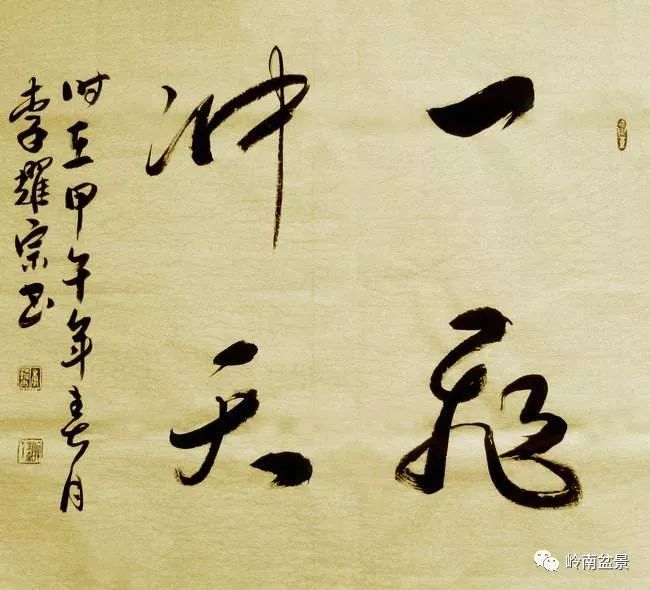 一飛
冲天
时在甲午年春月
李耀宗书
岭南盆景